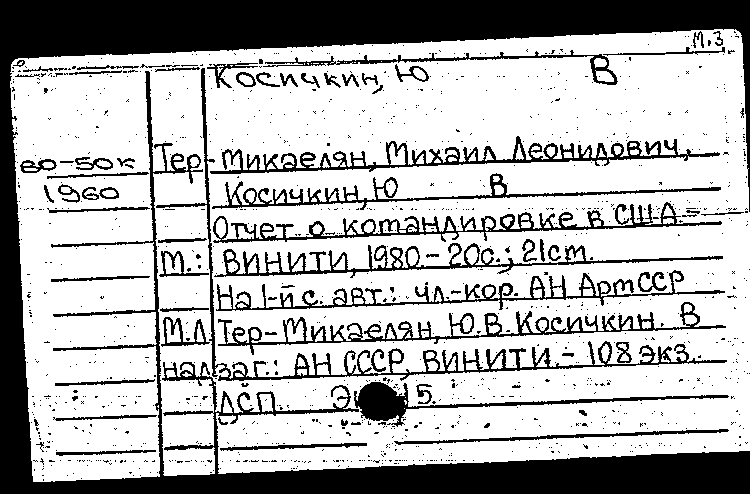 М.3
Косичкин, Ю В
60-50к Тер-Микаелян, Михаил Леонидович,
1960 Косичкин, Ю В
Отчет о командировке в США -
М.: ВИНИТИ, 1980.- 20с.; 21см.
На 1-й с. авт.: чл.-кор. АН АрмССР
М.Л. Тер-Микаелян, Ю.В. Косичкин. В
надзаг.: АН СССР, ВИНИТИ.- 108 экз.
ДСП 15